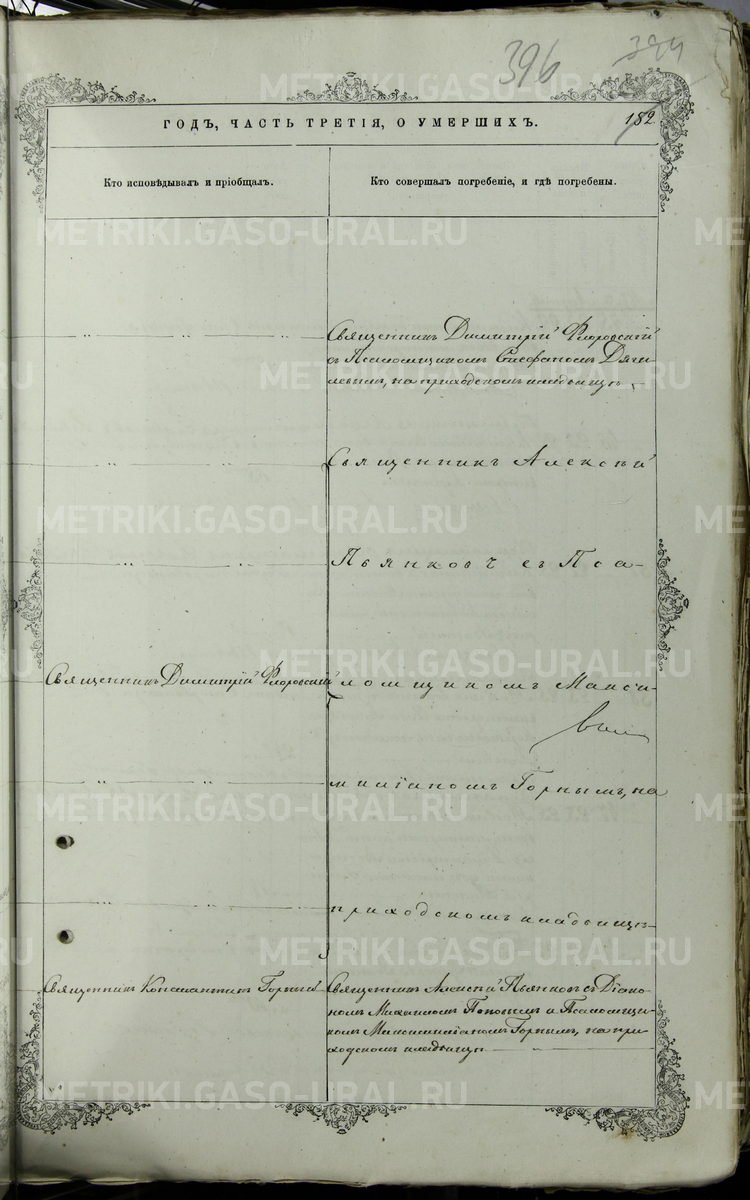 396 394
ГОДЪ, ЧАСТЬ ТРЕТІЯ, О УМЕРШИХЪ. 182
Кто исповѣдывалъ и пріобщалъ.
Кто совершалъ погребеніе, и гдѣ погребены.
Священникъ Димитрій Флоровскій
съ Псаломщикомъ Дяги
левымъ, на приходскомъ кладбищѣ
Священникъ Алексѣй
Пьянковъ съ Пса-
Священникъ Димитрій Флоровскій
ломщикомъ Макси-
миліаномъ Горнымъ, на
приходскомъ кладбищѣ
Священникъ Константинъ Горный
Священникъ Алексѣй Пьянковъ съ Діако-
номъ Михаиломъ Поповымъ и Псаломщи-
комъ Максимиліаномъ Горнымъ, на при
ходскомъ кладбищѣ
METRIKI.GASO-URAL.RU